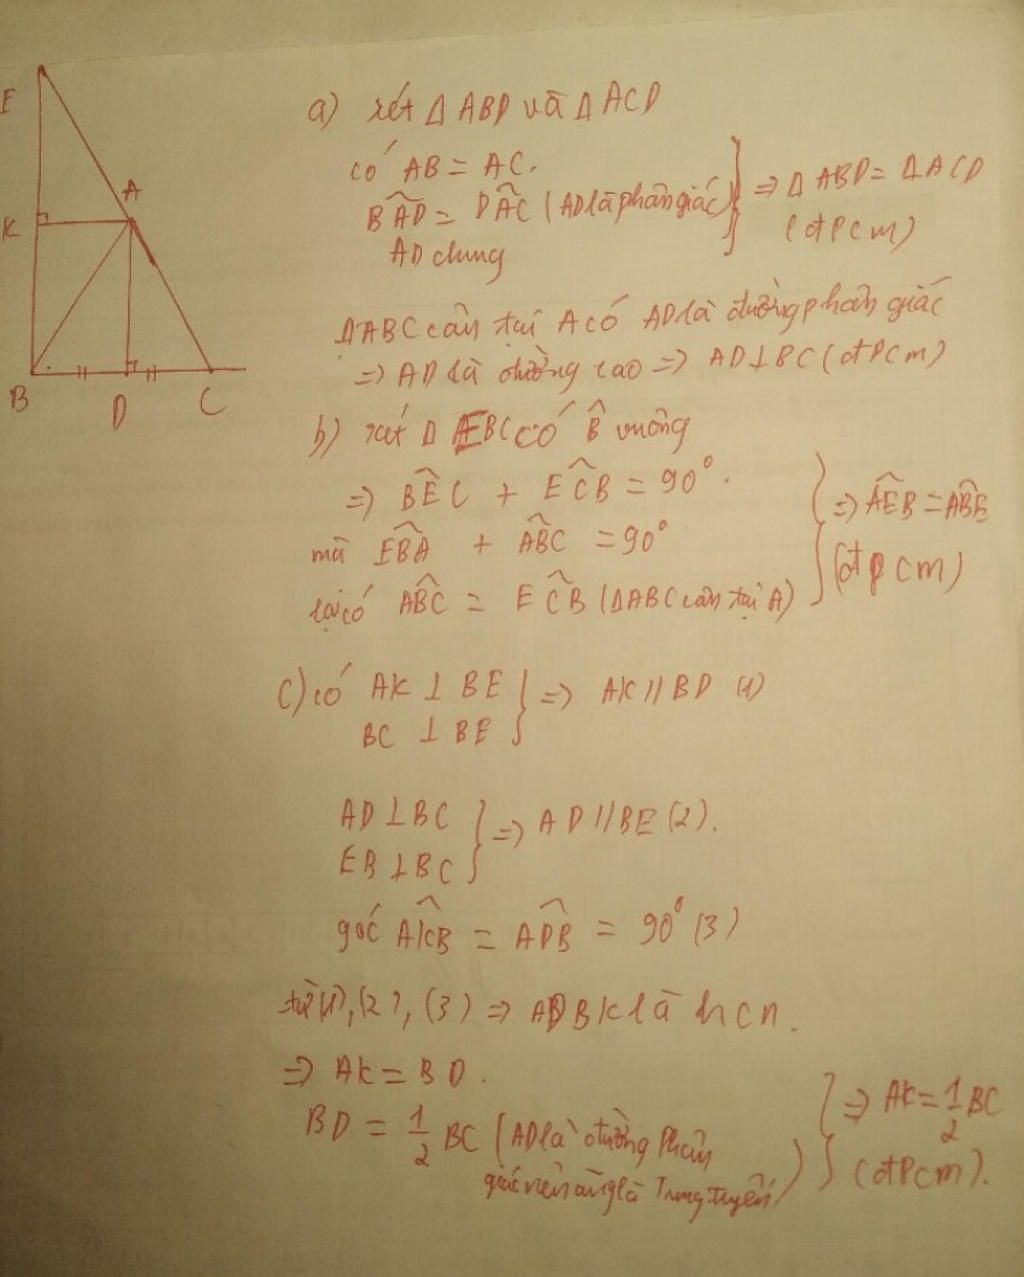 E
A
K
B
D
C
a) xét Δ ABD và Δ ACD
có AB = AC.
BAD̂ = DAĈ (AD là phân giác) } => Δ ABD = Δ ACD
AD chung
(đpcm)
ΔABC cân tại A có AD là đường phân giác
=> AD là đường cao => AD ⊥ BC (đpcm)
b) xét Δ EBC có B̂ vuông
=> BÊC + EĈB = 90°.
mà EB̂A + AB̂C = 90°
lại có AB̂C = EĈB (ΔABC cân tại A) } => AÊB = AB̂E
(đpcm)
c) có AK ⊥ BE } => AK // BD (1)
BC ⊥ BE
AD ⊥ BC } => AD // BE (2).
EB ⊥ BC
góc AK̂B = AD̂B = 90° (3)
từ (1), (2), (3) => ADBK là hcn.
=> AK = BD.
BD = 1/2 BC (AD là đường phân
giác nên cũng là Trung tuyến) } => AK = 1/2 BC
(đpcm).